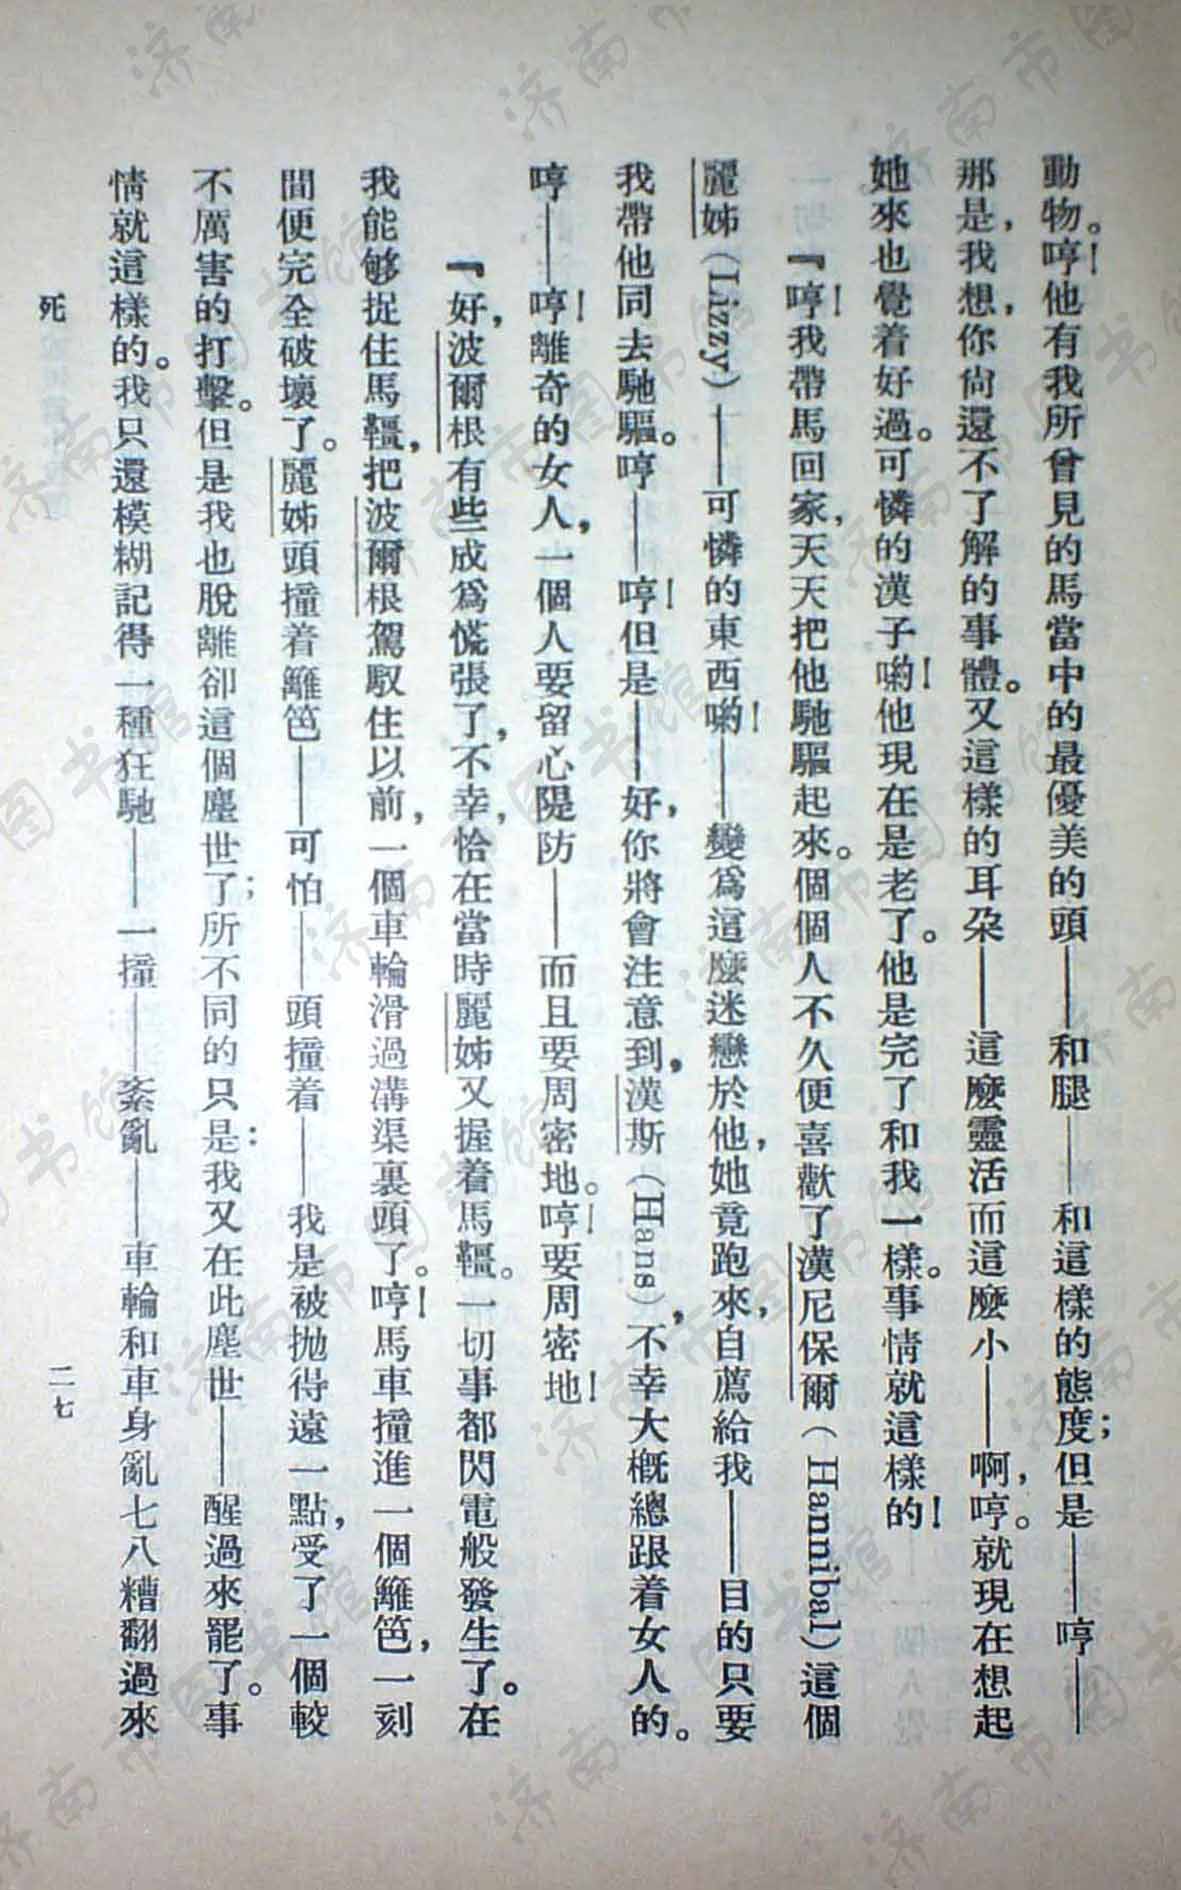 動物。哼！他有我所曾見的馬當中的最優美的頭——和腿——和這樣的態度；但是——哼——
那是，我想，你尙還不了解的事體。又這樣的耳朶——這麼靈活而這麼小——啊，哼。就現在想起
她來也覺着好過。可憐的漢子喲！他現在是老了。他是完了和我一樣。事情就這樣的！
『哼！我帶馬回家，天天把他馳驅起來。個個人不久便喜歡了漢尼保爾（Hannibal）這個
麗姊（Lizzy）——可憐的東西喲！——變爲這麼迷戀於他，她竟跑來，自薦給我——目的只要
我帶他同去馳驅。哼——哼！但是——好，你將會注意到，漢斯（Hans），不幸大槪總跟着女人的。
哼——哼！離奇的女人，一個人要留心隄防——而且要周密地。哼！要周密地！
『好，波爾根有些成爲慌張了，不幸，恰在當時麗姊又握着馬韁。一切事都閃電般發生了。在
我能够捉住馬韁，把波爾根駕馭住以前，一個車輪滑過溝渠裏頭了。哼！馬車撞進一個籬笆，一刻
間便完全破壞了。麗姊頭撞着籬笆——可怕——頭撞着——我是被抛得遠一點，受了一個較
不厲害的打擊。但是我也脫離卻這個塵世了；所不同的只是：我又在此塵世——醒過來罷了。事
情就這樣的。我只還模糊記得一種狂馳——一撞——紊亂——車輪和車身亂七八糟翻過來
死
二七
济南市图书馆